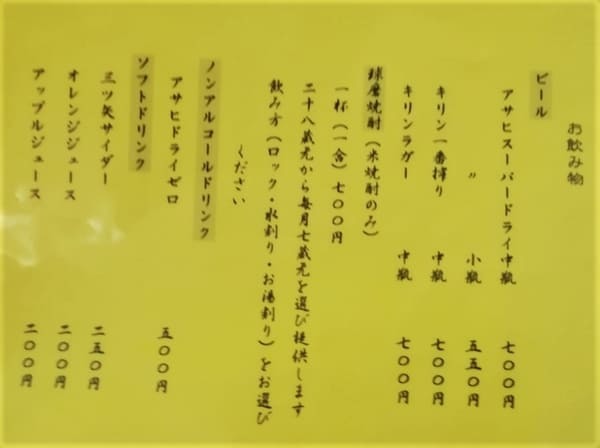 お飲み物
ビール
アサヒスーパードライ中瓶 七〇〇円
〃 小瓶 五五〇円
キリン一番搾り 中瓶 七〇〇円
キリンラガー 中瓶 七〇〇円
球磨焼酎（米焼酎のみ）
一杯（一合）七〇〇円
二十八蔵元から毎月七蔵元を選び提供します
飲み方（ロック・水割り・お湯割り）をお選び
ください
ノンアルコールドリンク
アサヒドライゼロ 五〇〇円
ソフトドリンク
三ツ矢サイダー 二五〇円
オレンジジュース 二〇〇円
アップルジュース 二〇〇円